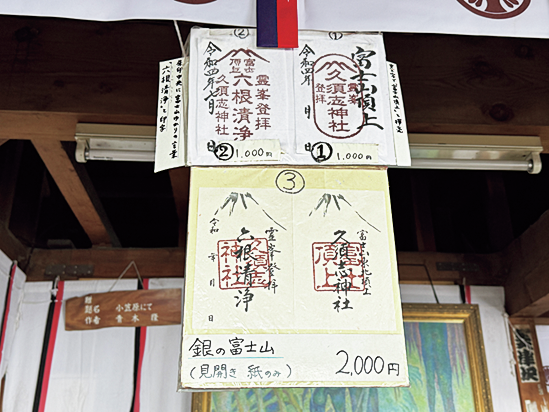 ②
令和四年 月 日
富士
頂上
霊峯登拝
六根清浄
久須志神社
② 1,000円
富士山頂上
令和四年 月 日
霊峯
登拝
久須志神社
① 1,000円
六根清浄
③
霊峯登拝
六根清浄
令和 年 月 日
久須志神社
久須志神社
頂上
銀の富士山
(見開き 紙のみ)
2,000円
題名 小笠原にて
作者 青木